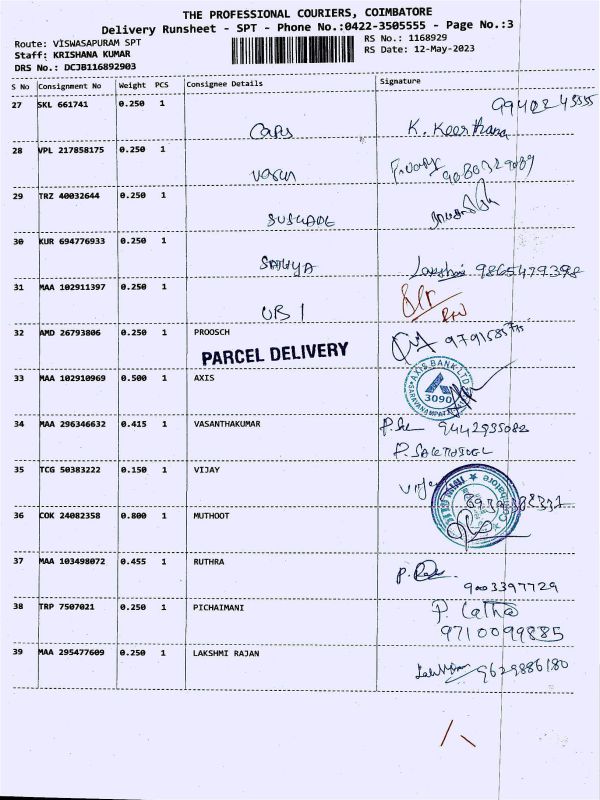 THE PROFESSIONAL COURIERS, COIMBATORE
Delivery Runsheet - SPT - Phone No.:0422-3505555 - Page No.:3
Route: VISWASAPURAM SPT
Staff: KRISHANA KUMAR
DRS No.: DCJB116892903
RS No.: 1168929
RS Date: 12-May-2023
S No Consignment No Weight PCS Consignee Details Signature
27 SKL 661741 0.250 1
K. Keerthana
28 VPL 217858175 0.250 1
Varun
29 TRZ 40032644 0.250 1
30 KUR 694776933 0.250 1
SATHYA Lakshmi 9865479398
31 MAA 102911397 0.250 1
UB1
32 AMD 26793806 0.250 1 PROOSCH
PARCEL DELIVERY
33 MAA 102910969 0.500 1 AXIS
AXIS BANK LTD
3090
34 MAA 296346632 0.415 1 VASANTHAKUMAR 9442935082
P. SAKTHIVEL
35 TCG 50383222 0.150 1 VIJAY
36 COK 24082358 0.800 1 MUTHOOT
37 MAA 103498072 0.455 1 RUTHRA
9003397729
38 TRP 7507021 0.250 1 PICHAIMANI P. Latha
9710099885
39 MAA 295477609 0.250 1 LAKSHMI RAJAN 9629886180